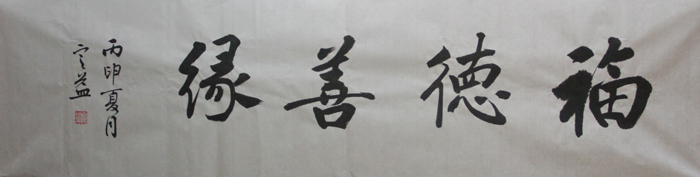 福德善缘
丙申夏月